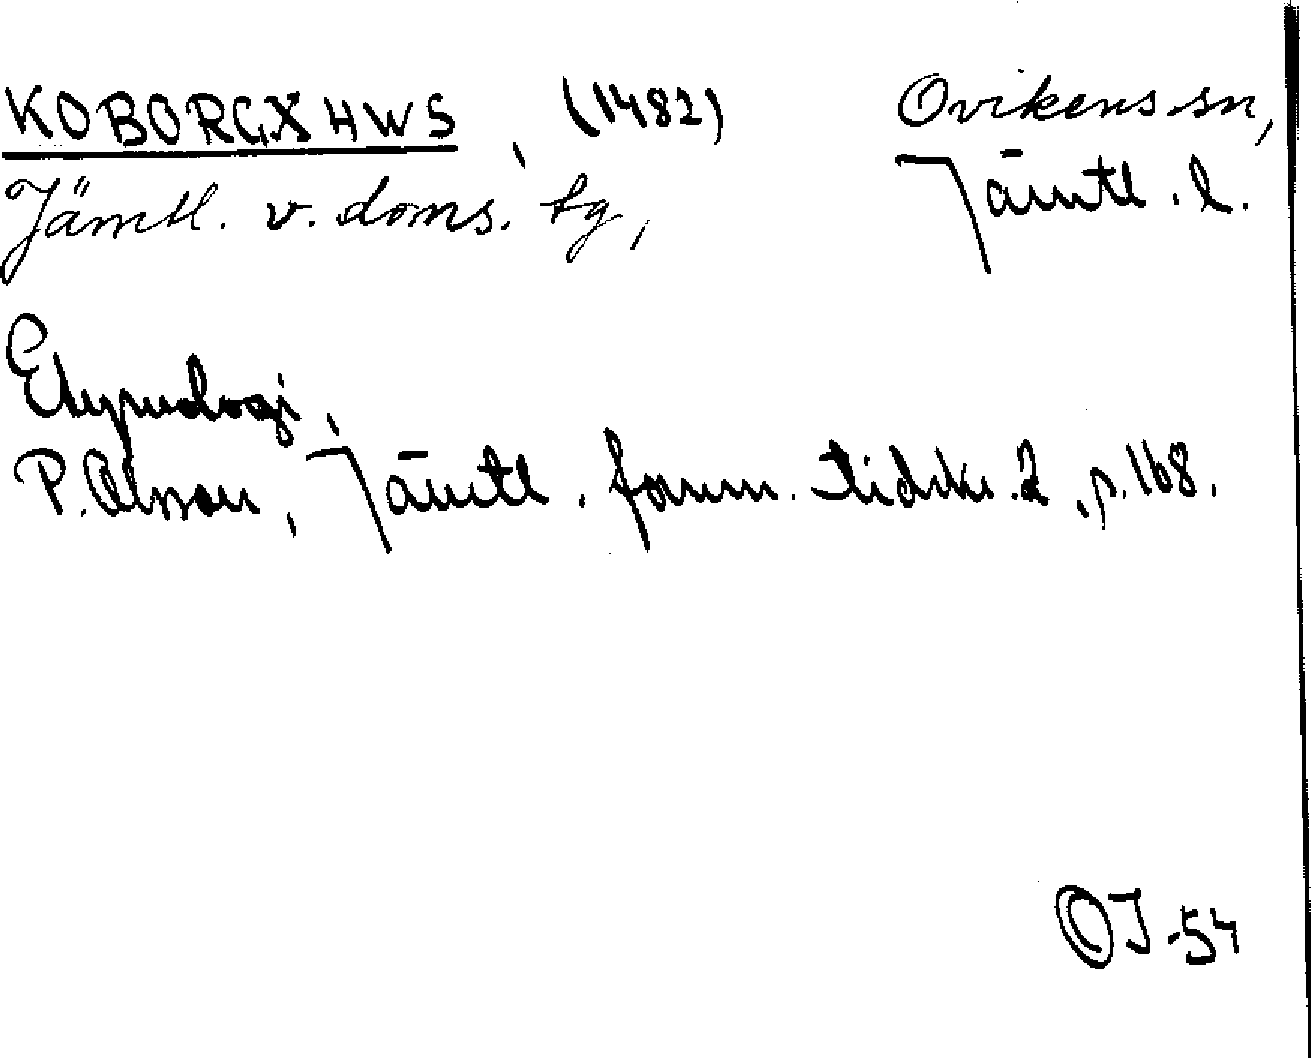 KOBORGXHWS, (1482) Ovikens sn,
Jämtl. v. doms. tg, Jämtl. l.
Etymologi,
P. Olsson, Jämtl. fornm. tidskr. 2, s. 168.
OJ -54